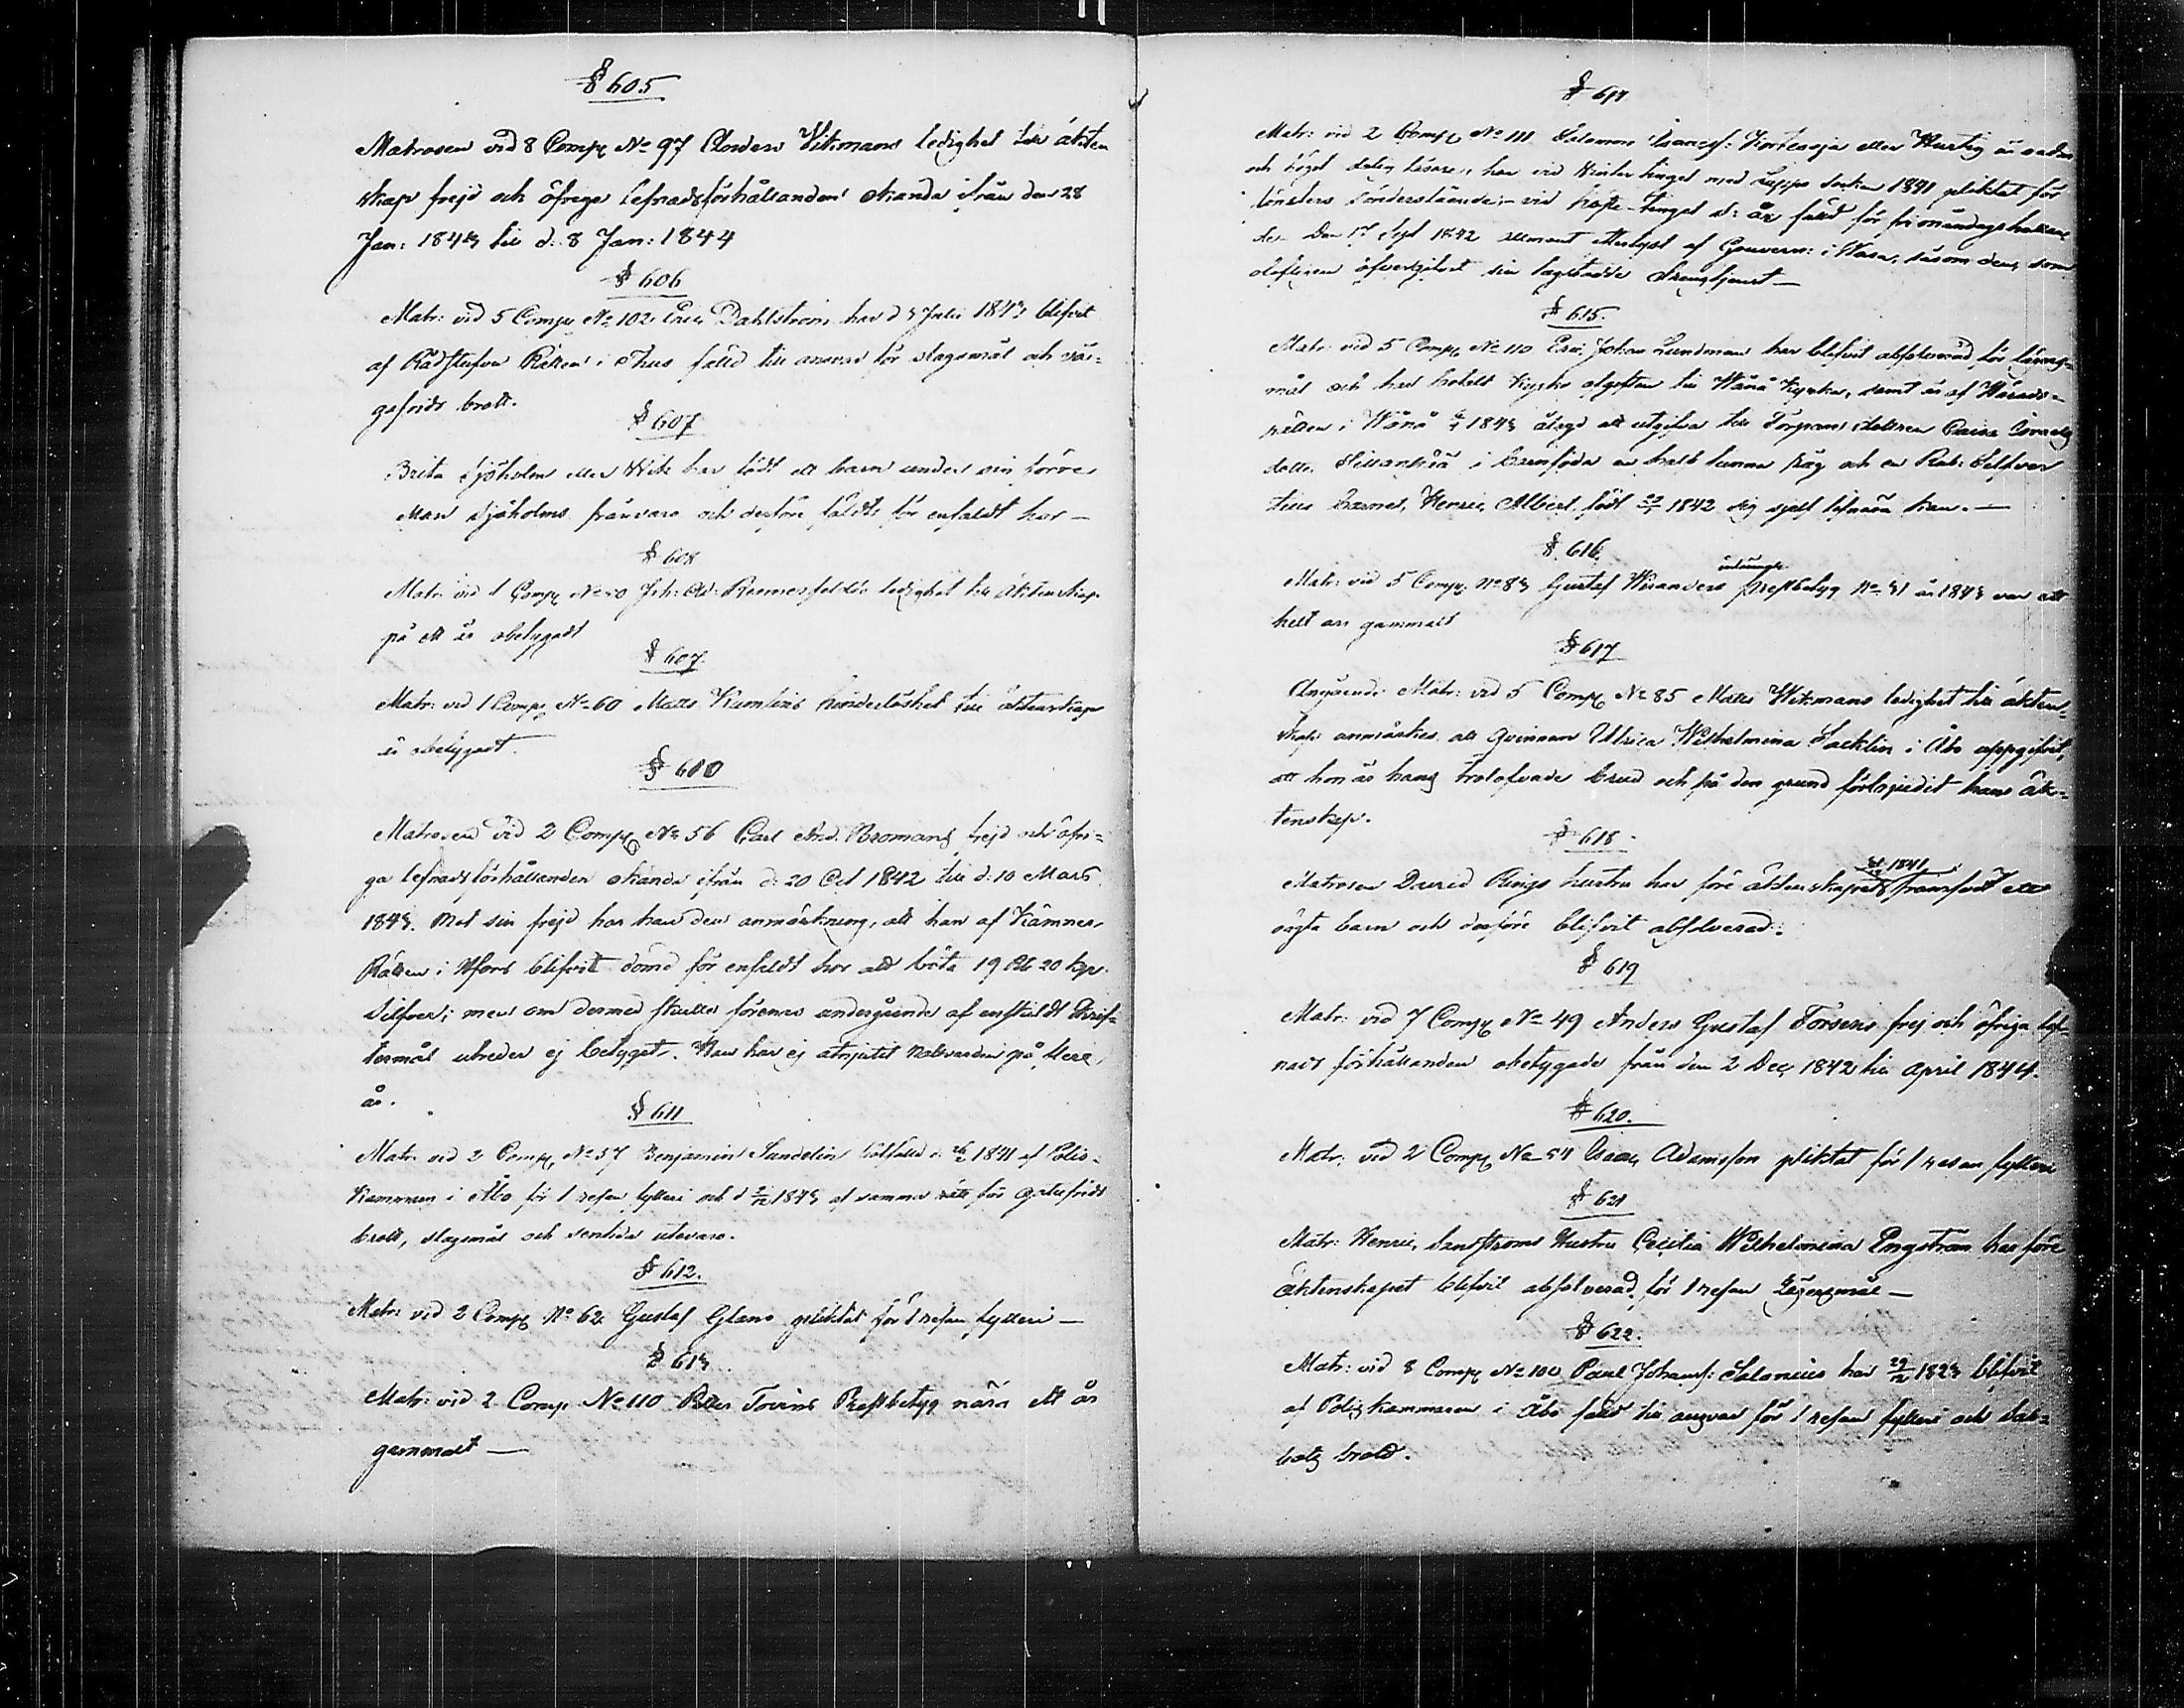 § 605
Matrosen vid 8 Comp N 97 Anders Wikmans ledighet till äkten
skap frejd och öfrige lefnadsförhållanden okända ifrån den 28
Jan: 1843 till d. 8 Jan: 1844
§ 606
Matr: vid 5 Comp N 102 Eric Dahlström har d 3 Julii 1843 blifvit
af Rådstufvu Rätten i Åhus fälld till ansvar för slagsmål och
gafrids brott.
§ 607
Brita Sjöholm eller Wik har födt ett barn under sin förre
Man Sjöholms frånvaro och derföre fälts för enfaldt hor —
§ 608
Matr: vid 1 Comp N 50 Joh: Ad: ledighet till äktenskap
på ett år obetygadt
§ 607
Matr: vid 1 Comp N 60 Matts Kumlins hinderlöshet till äktenskap
är obetygadt.
§ 610
Matrosen vid 2 Comp N 56 Carl And. Bromans frejd och öfri=
ga lefnadsförhållanden okända ifrån d: 20 Oct 1842 till d: 10 Mars
1843. Mot sin frejd har han den anmärkning, att han af Kämners
Rätten i Hfors blifvit dömd för enfaldt hor att böta 19 Rb 20 kp
Silfver; men om dermed skulle förenas undergående af enskildt Skrif=
termål utreder ej betyget. Han har ej Nattvarden på flere
år.
§ 611
Matr: vid 2 Comp, N 57 Benjamin Sundelin d. 1841 af Polis-
Kammaren i Åbo för 1 resan fylleri och d 1843 af samma rätt för gatufrids
brott, slagsmål och sentida utevaro.
§ 612.
Matr: vid 2 Comp N 62 Gustaf Glans pliktat för 1 resan fylleri —
§ 613
Matr: vid 2 Comp N 110 Petter Tovins Prestbetyg nära ett år
gammalt —
§ 614
Matr: vid 2 Comp N 111 Salomon Isaacs: eller Hurtig är
och högst läsare, har vid Vinter tinget med Lappo Socken 1841 pliktat för
fönsters sönderslående; vid höste-tinget s: år fälld för
Den 17 Sept 1842 efterlyst af Gouvern: i Wasa, såsom den, som
olofligen öfvergifvit sin lagstadde drengtjenst —
§ 615.
Matr: vid 5 Comp, N 110 Eric Johan Lundman har blifvit absolverad för lägers=
mål och har betalt Kyrko afgiften till Wånå Kyrka, samt är af Härads=
rätten i Wånå 1843 ålagd att utgifva till Torpare dottren Caisa
dotter i barnföda en half tunna råg och en Rub: Silfver
tills barnet, Henric Albert, födt 1842 sig sjelf försörja kan. —
§ 616.
Matr: vid 5 Comp: N 83 Gustaf Wisanders inlemnade prestbetyg N 31 år 1843 var ett
helt år gammalt
§ 617
Angående Matr: vid 5 Comp N 85 Matts Wikmans ledighet till äkten=
skap anmärkes att Qvinnan Ulrica Wilhelmina Sacklin i Åbo uppgifvit,
att hon är hans trolofvade brud och på den grund förbjudit hans äk=
tenskap.
§ 618
Matrosen David Rings hustru har före äktenskapet 1841 framfödt ett
oägta barn och derföre blifvit absolverad.
§ 619
Matr: vid 7 Comp N 49 Anders Gustaf Forsens frej och öfriga lef=
nads förhållanden obetygade från den 2 Dec 1842 till April 1844.
§ 620.
Matr: vid 2 Comp N 54 Isaac Adamsson pliktat för 1 resan fylleri
§ 621
Matr: Henric Sandströms Hustru Cecilia Wilhelmina Engström har före
äktenskapet blifvit absolverad för 1 resan Lägersmål —
§ 622.
Matr: vid 8 Comp N 100 Paul Johans: Salonius har 29/12 1823 blifvit
af Polis kammaren i Åbo fälld till answar för 1 resan fylleri och Sab=
bats brott.